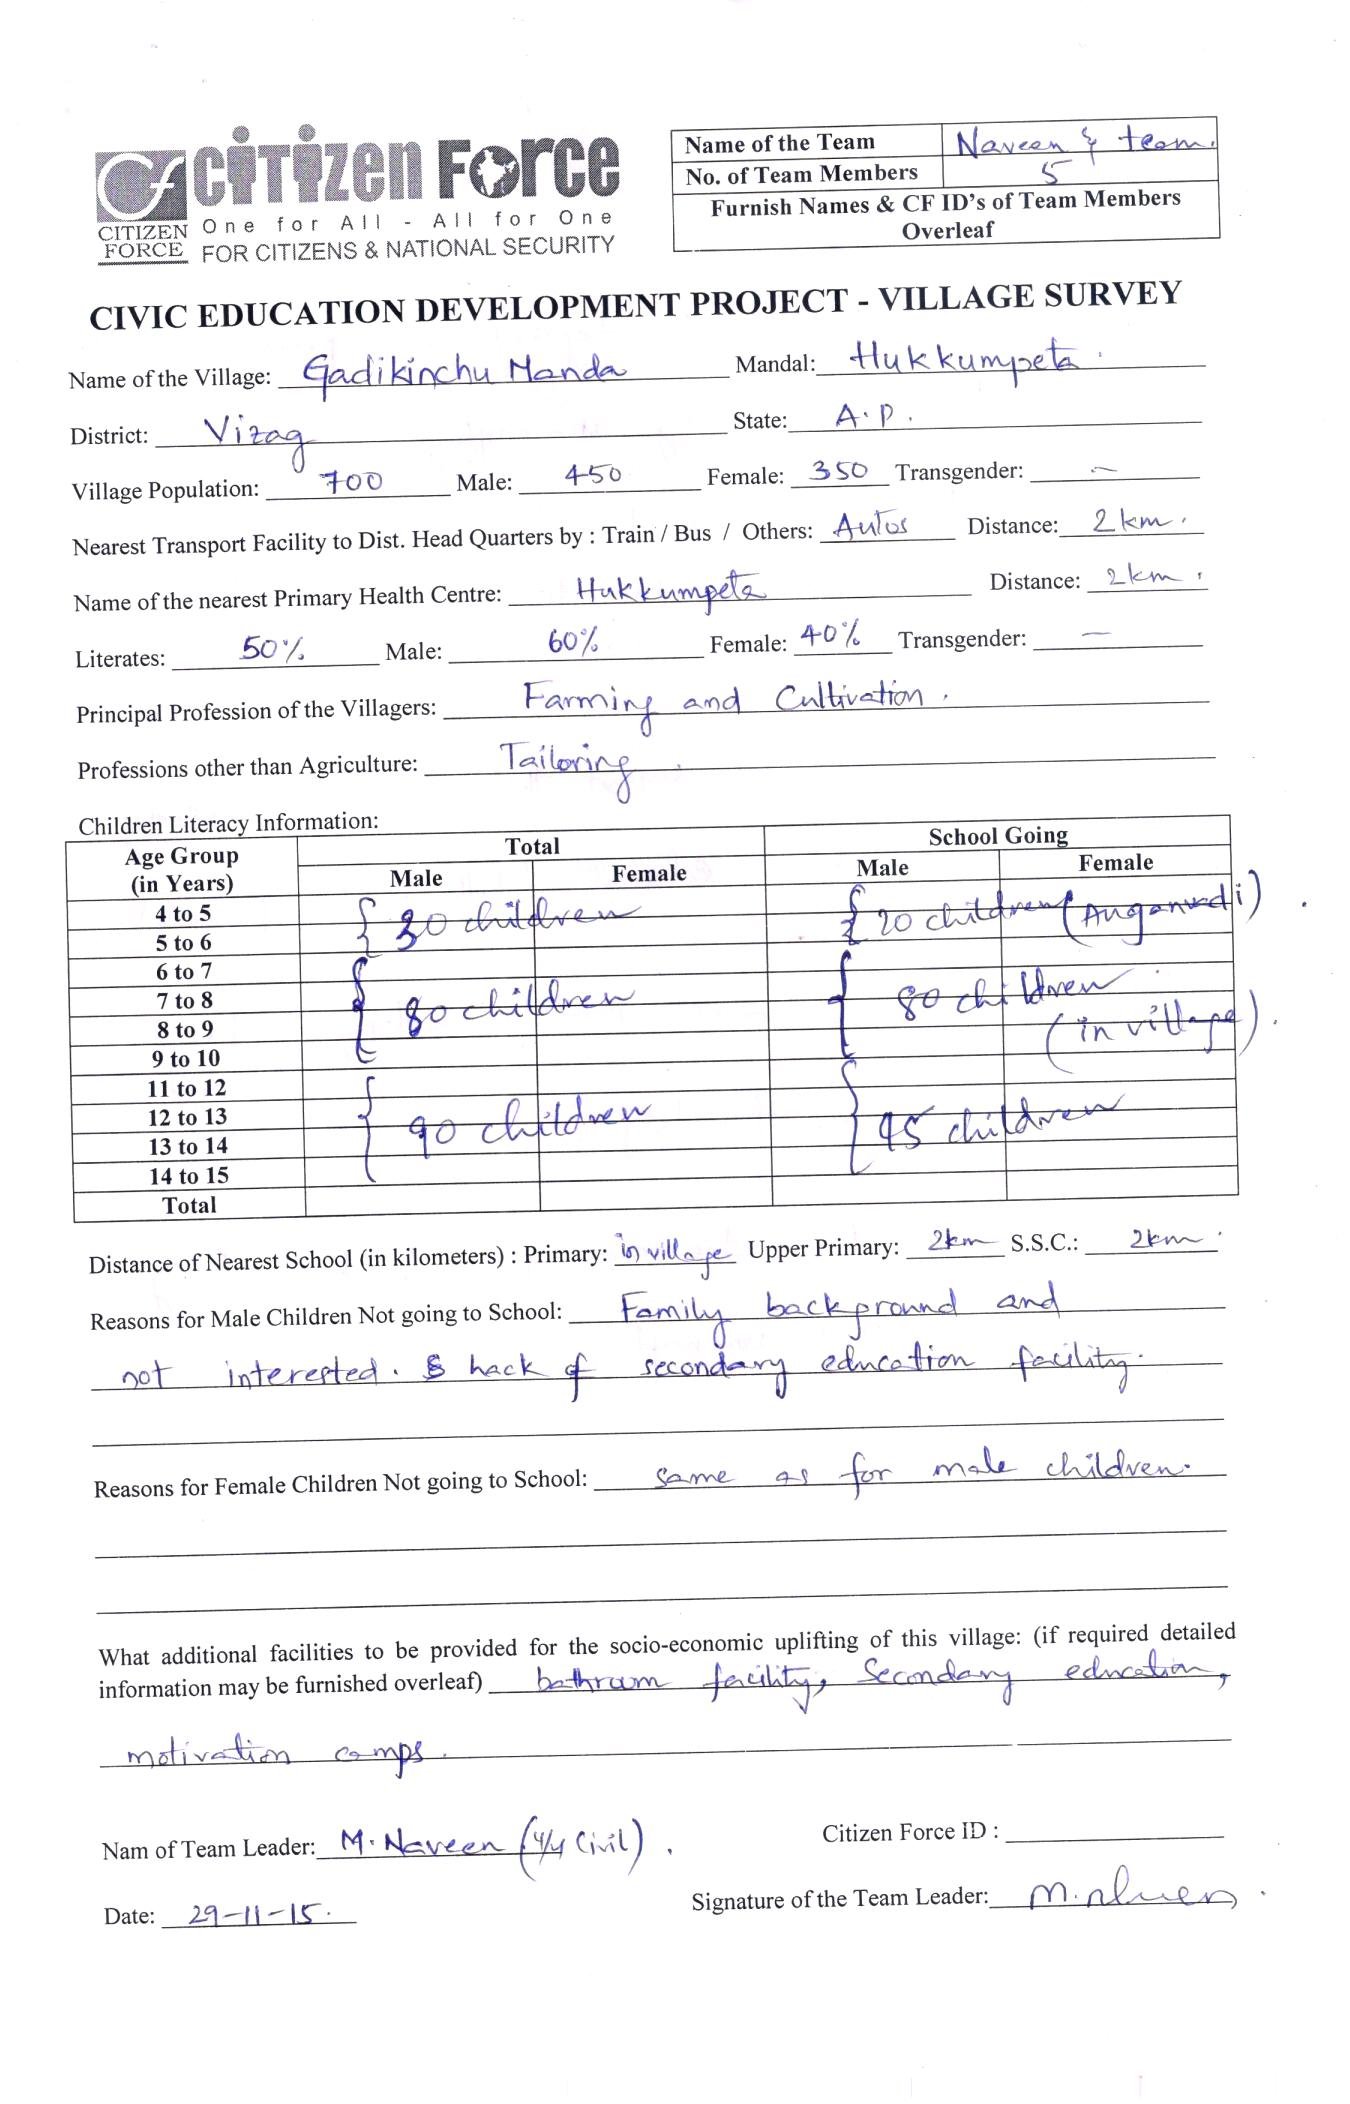 CITIZEN FORCE
One for All - All for One
CITIZEN FORCE
FOR CITIZENS & NATIONAL SECURITY
Name of the Team Naveen & team.
No. of Team Members 5
Furnish Names & CF ID's of Team Members
Overleaf
CIVIC EDUCATION DEVELOPMENT PROJECT - VILLAGE SURVEY
Name of the Village: Gadikinchu Manda Mandal: Hukkumpeta.
District: Vizag State: A.P.
Village Population: 700 Male: 450 Female: 350 Transgender: —
Nearest Transport Facility to Dist. Head Quarters by : Train / Bus / Others: Autos Distance: 2 km.
Name of the nearest Primary Health Centre: Hukkumpeta Distance: 2km.
Literates: 50% Male: 60% Female: 40% Transgender: —
Principal Profession of the Villagers: Farming and Cultivation.
Professions other than Agriculture: Tailoring.
Children Literacy Information:
Age Group (in Years) Total School Going
Male Female Male Female
4 to 5 { 30 children { 20 children (Anganvadi).
5 to 6
6 to 7
7 to 8 { 80 children { 80 children
8 to 9 (in village).
9 to 10
11 to 12
12 to 13 { 90 children { 45 children
13 to 14
14 to 15
Total
Distance of Nearest School (in kilometers) : Primary: in village Upper Primary: 2km S.S.C.: 2km.
Reasons for Male Children Not going to School: Family background and
not interested. & lack of secondary education facility.
Reasons for Female Children Not going to School: same as for male children.
What additional facilities to be provided for the socio-economic uplifting of this village: (if required detailed
information may be furnished overleaf) bathroom facility, Secondary education,
motivation camps.
Nam of Team Leader: M. Naveen (4/4 Civil). Citizen Force ID :
Date: 29-11-15. Signature of the Team Leader: